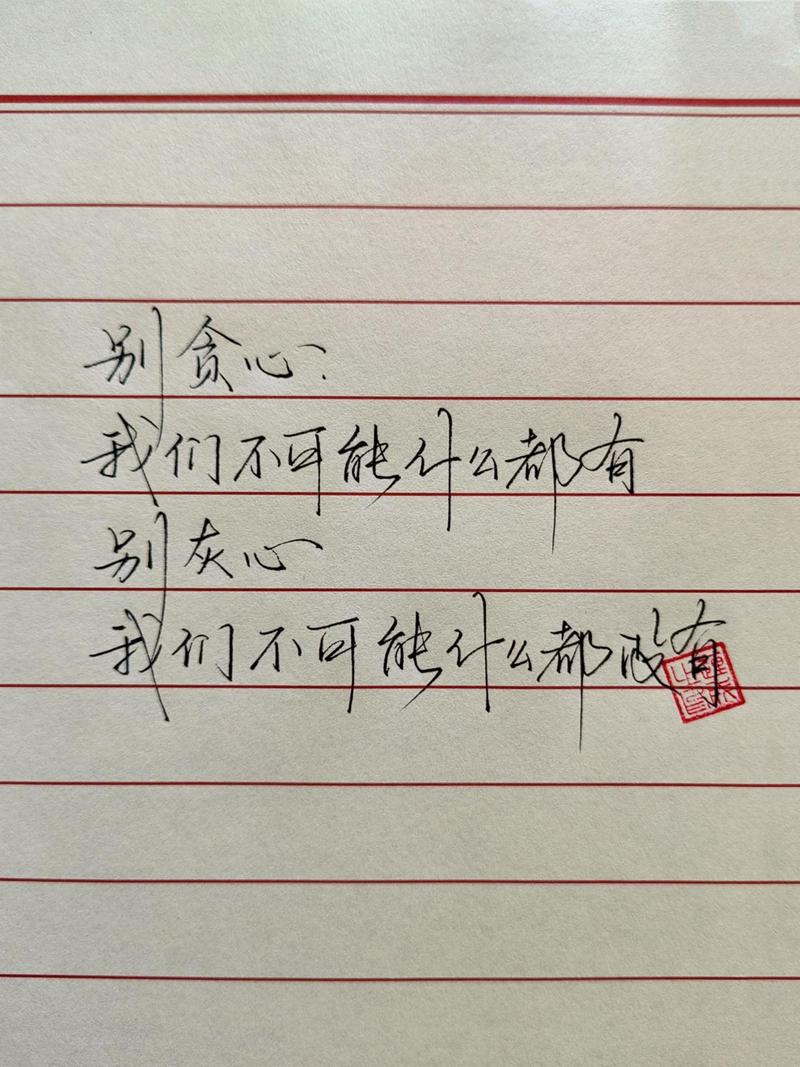 别贪心
我们不可能什么都有
别灰心
我们不可能什么都没有